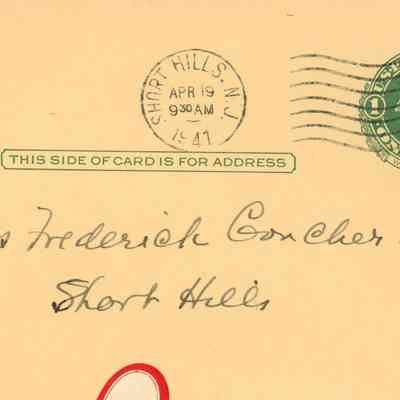 SHORT HILLS. N.J.
APR 19
9 30 AM
1941
1
THIS SIDE OF CARD IS FOR ADDRESS
Frederick Goncher
Short Hills